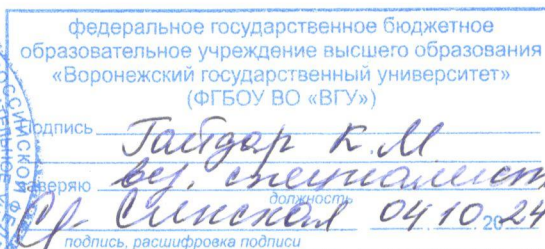 федеральное государственное бюджетное
образовательное учреждение высшего образования
«Воронежский государственный университет»
(ФГБОУ ВО «ВГУ»)
подпись Гайдар К.М
заверяю вед. специалист
должность
Синская 04 10 2024
подпись, расшифровка подписи